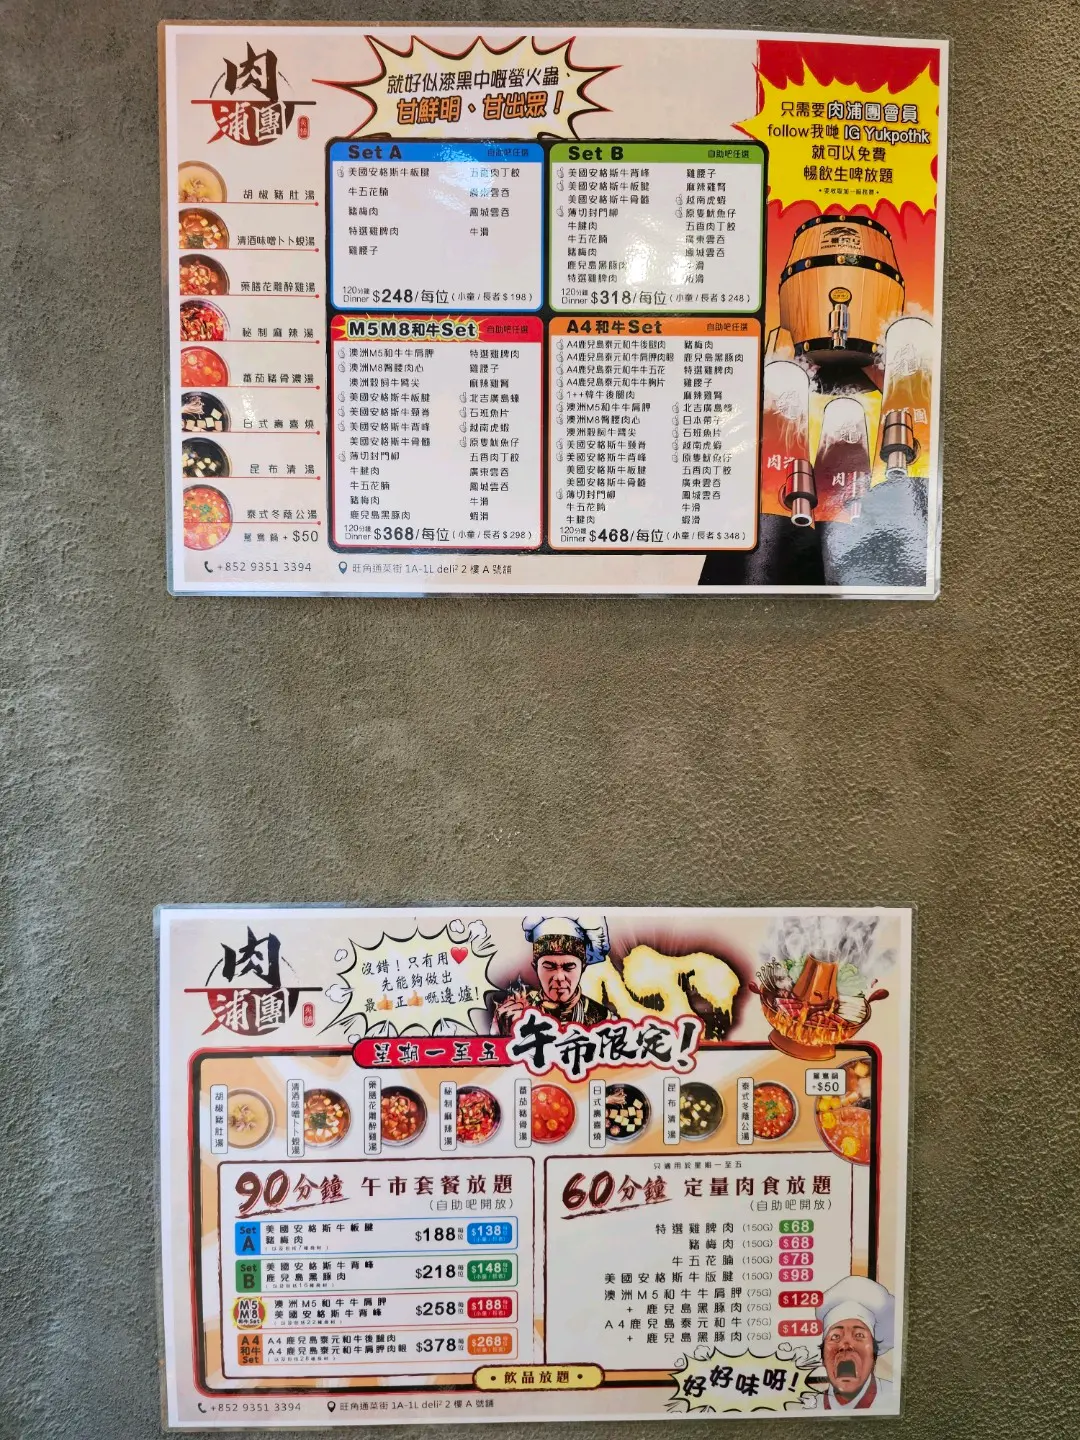 肉
浦團
就好似漆黑中嘅螢火蟲、
甘鮮明、甘出眾！
只需要肉浦團會員
follow我哋 IG Yukpothk
就可以免費
暢飲生啤放題
胡椒豬肚湯
清酒味噌卜卜蜆湯
藥膳花雕醉雞湯
秘制麻辣湯
番茄豬骨濃湯
台式壽喜燒
昆布清湯
泰式冬蔭公湯
鴛鴦鍋 + $50
Set A 自助吧任選
美國安格斯牛板腱 五香肉丁餃
牛五花腩 廣東雲吞
豬梅肉 鳳城雲吞
特選雞脾肉 牛滑
雞腰子
120分鐘
Dinner $248/每位 (小童/長者$198)
Set B 自助吧任選
美國安格斯牛背峰 雞腰子
美國安格斯牛板腱 麻辣雞腎
美國安格斯牛骨髓 越南虎蝦
薄切封門柳 原隻魷魚仔
牛腱肉 五香肉丁餃
牛五花腩 廣東雲吞
豬梅肉 鳳城雲吞
鹿兒島黑豚肉 牛滑
特選雞脾肉 蝦滑
120分鐘
Dinner $318/每位 (小童/長者$248)
M5M8和牛Set 自助吧任選
澳洲M5和牛牛肩胛 特選雞脾肉
澳洲M8臀腰肉心 雞腰子
澳洲穀飼牛臀尖 麻辣雞腎
美國安格斯牛板腱 北吉廣島蠔
美國安格斯牛頸脊 石班魚片
美國安格斯牛背峰 越南虎蝦
美國安格斯牛骨髓 原隻魷魚仔
薄切封門柳 五香肉丁餃
牛腱肉 廣東雲吞
牛五花腩 鳳城雲吞
豬梅肉 牛滑
鹿兒島黑豚肉 蝦滑
120分鐘
Dinner $368/每位 (小童/長者$298)
A4和牛Set 自助吧任選
A4鹿兒島泰元和牛後腿肉 豬梅肉
A4鹿兒島泰元和牛肩胛肉眼 鹿兒島黑豚肉
A4鹿兒島泰元和牛牛五花 特選雞脾肉
A4鹿兒島泰元和牛胸片 雞腰子
1++韓牛後腿肉 麻辣雞腎
澳洲M5和牛牛肩胛 北吉廣島蠔
澳洲M8臀腰肉心 日本帶子
澳洲穀飼牛臀尖 石班魚片
美國安格斯牛頸脊 越南虎蝦
美國安格斯牛背峰 原隻魷魚仔
美國安格斯牛板腱 五香肉丁餃
美國安格斯牛骨髓 廣東雲吞
薄切封門柳 鳳城雲吞
牛五花腩 牛滑
牛腱肉 蝦滑
120分鐘
Dinner $468/每位 (小童/長者$348)
+852 9351 3394 旺角通菜街 1A-1L deli² 2 樓 A 號舖
肉
浦團
沒錯！只有用
先能夠做出
最正嘅邊爐！
星期一至五 午市限定！
胡椒豬肚湯
清酒味噌卜卜蜆湯
藥膳花雕醉雞湯
秘制麻辣湯
番茄豬骨湯
日式壽喜燒
昆布清湯
泰式冬蔭公湯
鴛鴦鍋
+$50
90分鐘 午市套餐放題
(自助吧開放)
Set A 美國安格斯牛板腱
豬梅肉 $188每位 $138
Set B 美國安格斯牛背峰
鹿兒島黑豚肉 $218每位 $148
M5 M8 和牛Set 澳洲M5和牛牛肩胛
美國安格斯牛背峰 $258每位 $188
A4 和牛 Set A4鹿兒島泰元和牛後腿肉
A4鹿兒島泰元和牛肩胛肉眼 $378每位 $268
只適用於星期一至五
60分鐘 定量肉食放題
(自助吧開放)
特選雞脾肉 (150G) $68
豬梅肉 (150G) $68
牛五花腩 (150G) $78
美國安格斯牛版腱 (150G) $98
澳洲M5和牛牛肩胛 (75G)
+ 鹿兒島黑豚肉 (75G) $128
A4鹿兒島泰元和牛 (75G)
+ 鹿兒島黑豚肉 (75G) $148
• 飲品放題 •
好好味呀！
+852 9351 3394 旺角通菜街 1A-1L deli² 2 樓 A 號舖